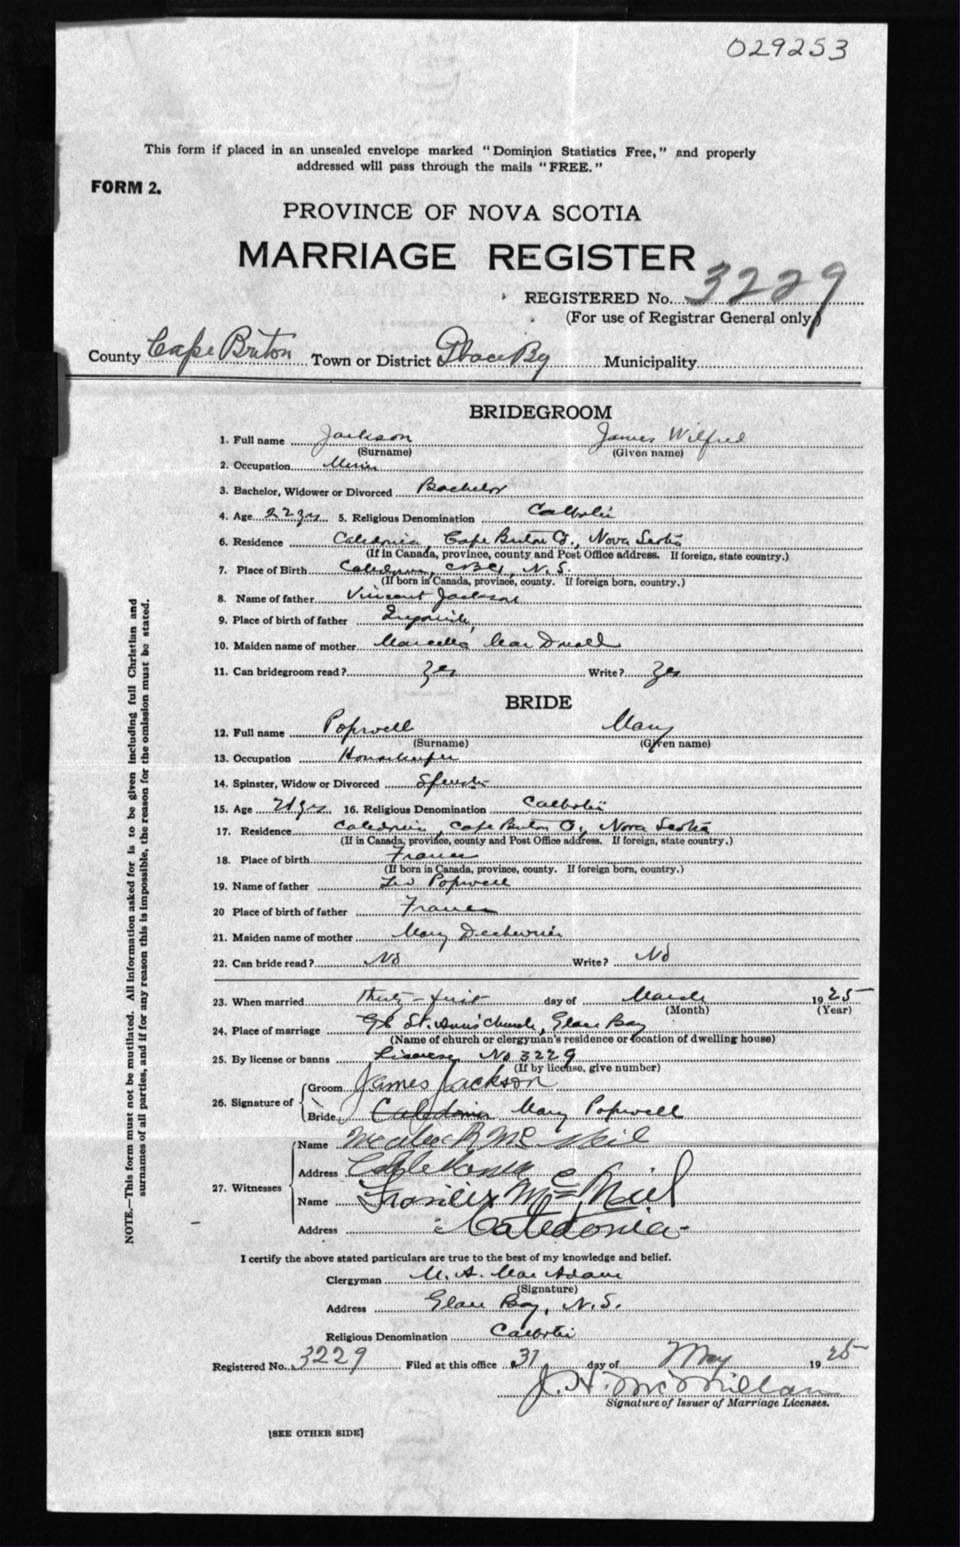 029253
This form if placed in an unsealed envelope marked "Dominion Statistics Free," and properly
addressed will pass through the mails "FREE."
FORM 2.
PROVINCE OF NOVA SCOTIA
MARRIAGE REGISTER
REGISTERED No. 3229
(For use of Registrar General only)
County Cape Breton Town or District Glace Bay Municipality
BRIDEGROOM
1. Full name Jackson James Wilfred
(Surname) (Given name)
2. Occupation Miner
3. Bachelor, Widower or Divorced Bachelor
4. Age 22 yrs 5. Religious Denomination Catholic
6. Residence Caledonia, Cape Breton Co., Nova Scotia
(If in Canada, province, county and Post Office address. If foreign, state country.)
7. Place of Birth Caledonia, C.B. Co., N.S.
(If born in Canada, province, county. If foreign born, country.)
8. Name of father Vincent Jackson
9. Place of birth of father
10. Maiden name of mother Marcella
11. Can bridegroom read? Yes Write? Yes
BRIDE
12. Full name Popwell Mary
(Surname) (Given name)
13. Occupation Housekeeper
14. Spinster, Widow or Divorced Spinster
15. Age 21 yrs 16. Religious Denomination Catholic
17. Residence Caledonia, Cape Breton Co, Nova Scotia
(If in Canada, province, county and Post Office address. If foreign, state country.)
18. Place of birth France
(If born in Canada, province, county. If foreign born, country.)
19. Name of father Leo Popwell
20 Place of birth of father France
21. Maiden name of mother Mary
22. Can bride read? No Write? No
23. When married thirty-first day of March 1925
(Month) (Year)
24. Place of marriage St. Anne's Church, Glace Bay
(Name of church or clergyman's residence or location of dwelling house)
25. By license or banns License No 3229
(If by license, give number)
26. Signature of Groom James Jackson
Bride Caledonia Mary Popwell
27. Witnesses
Name McNeil
Address Caledonia
Name McNeil
Address Caledonia
I certify the above stated particulars are true to the best of my knowledge and belief.
Clergyman M. A. MacAdam
(Signature)
Address Glace Bay, N.S.
Religious Denomination Catholic
Registered No. 3229 Filed at this office 31 day of May 1925
J. H. McMillan
Signature of Issuer of Marriage Licenses.
[SEE OTHER SIDE]
NOTE.—This form must not be mutilated. All information asked for is to be given including full Christian and
surnames of all parties, and if for any reason this is impossible, the reason for the omission must be stated.